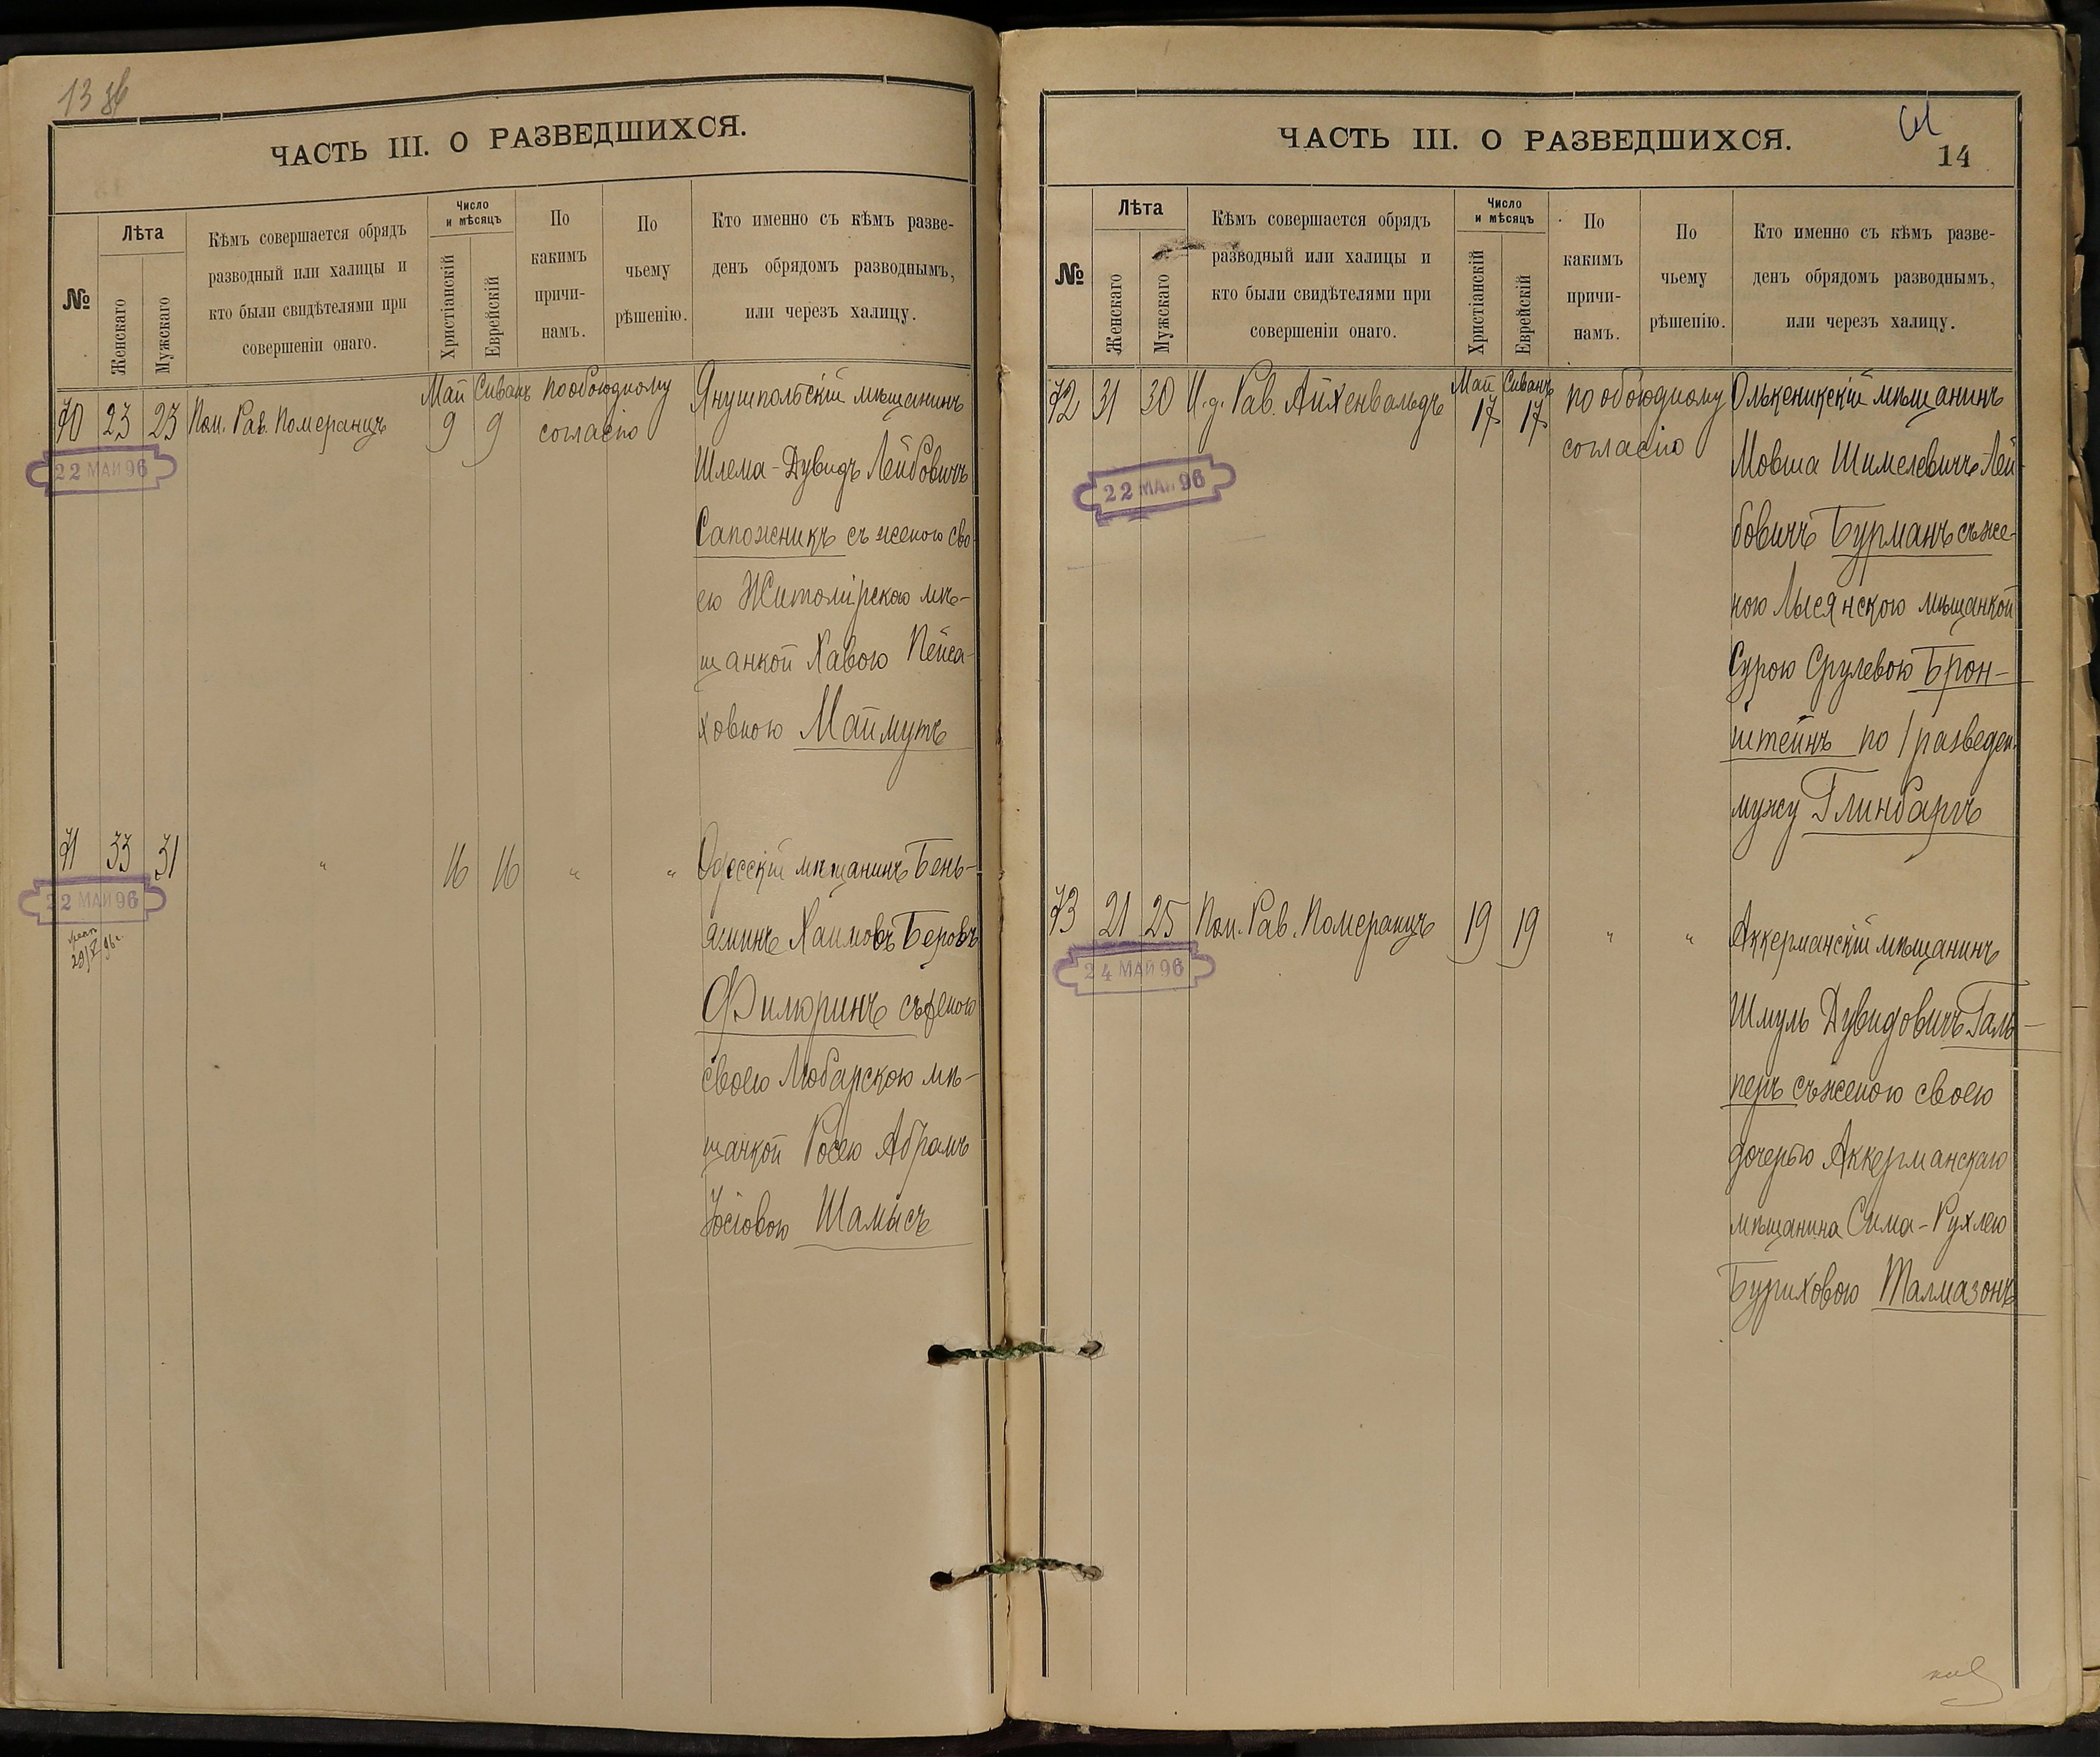 13 об
ЧАСТЬ III. О РАЗВЕДШИХСЯ.
№
Лѣта
Женскаго
Мужскаго
Кѣмъ совершается обрядъ
разводный или халицы и
кто были свидѣтелями при
совершеніи онаго.
Число
и мѣсяцъ
Христіанскій
Еврейскій
По
какимъ
причи-
намъ.
По
чьему
рѣшенію.
Кто именно съ кѣмъ разве-
денъ обрядомъ разводнымъ,
или черезъ халицу.
70 23 23 Пом. Рав. Померанцъ
Май 9
Сиванъ 9
по обоюдному
согласію
22 МАЙ 96
Янушпольскій мѣщанинъ
Шлема-Дувидъ Лейбовичъ
Сапожникъ съ женою сво-
ею Житомірскою мѣ-
щанкой Хавою Пейса-
ховною Маймутъ
71 33 31 " 16 16 " "
22 МАЙ 96
29/V 96 г.
Одесскій мѣщанинъ Бень-
яминъ Хаимовъ Беровъ
Филюринъ съ женою
своею Любарскою мѣ-
щанкой Росею Абрамъ
Іосіовою Шамисъ
ЧАСТЬ III. О РАЗВЕДШИХСЯ.
14
№
Лѣта
Женскаго
Мужскаго
Кѣмъ совершается обрядъ
разводный или халицы и
кто были свидѣтелями при
совершеніи онаго.
Число
и мѣсяцъ
Христіанскій
Еврейскій
По
какимъ
причи-
намъ.
По
чьему
рѣшенію.
Кто именно съ кѣмъ разве-
денъ обрядомъ разводнымъ,
или черезъ халицу.
72 31 30 И. д. Рав. Айхенвальдъ
Май 17
Сиванъ 17
по обоюдному
согласію
22 МАЙ 96
Олькеникскій мѣщанинъ
Мовша Шимелевичъ Лей-
бовичъ Бурманъ съ же-
ною Лысянскою мѣщанкой
Сурою Срулевою Брон-
штейнъ по 1 разведен.
мужу Глинбаргъ
73 21 25 Пом. Рав. Померанцъ 19 19 " "
24 МАЙ 96
Аккерманскій мѣщанинъ
Шмуль Дувидовичъ Галь-
перъ съ женою своею
дочерью Аккерманскаго
мѣщанина Сима-Рухлею
Буриховою Талмазонъ